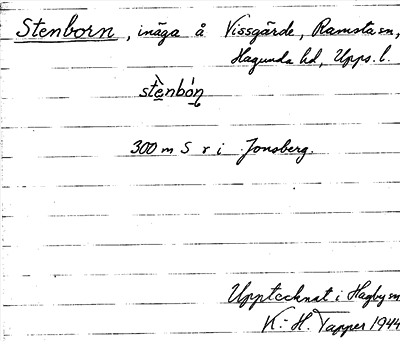 Stenborn, inäga å Vissgärde, Ramsta sn,
Hagunda hd, Upps. l.
stè̱nbón̮
300 m S r i Jonsberg.
Upptecknat i Hagby sn
K.-H. Tapper 1944